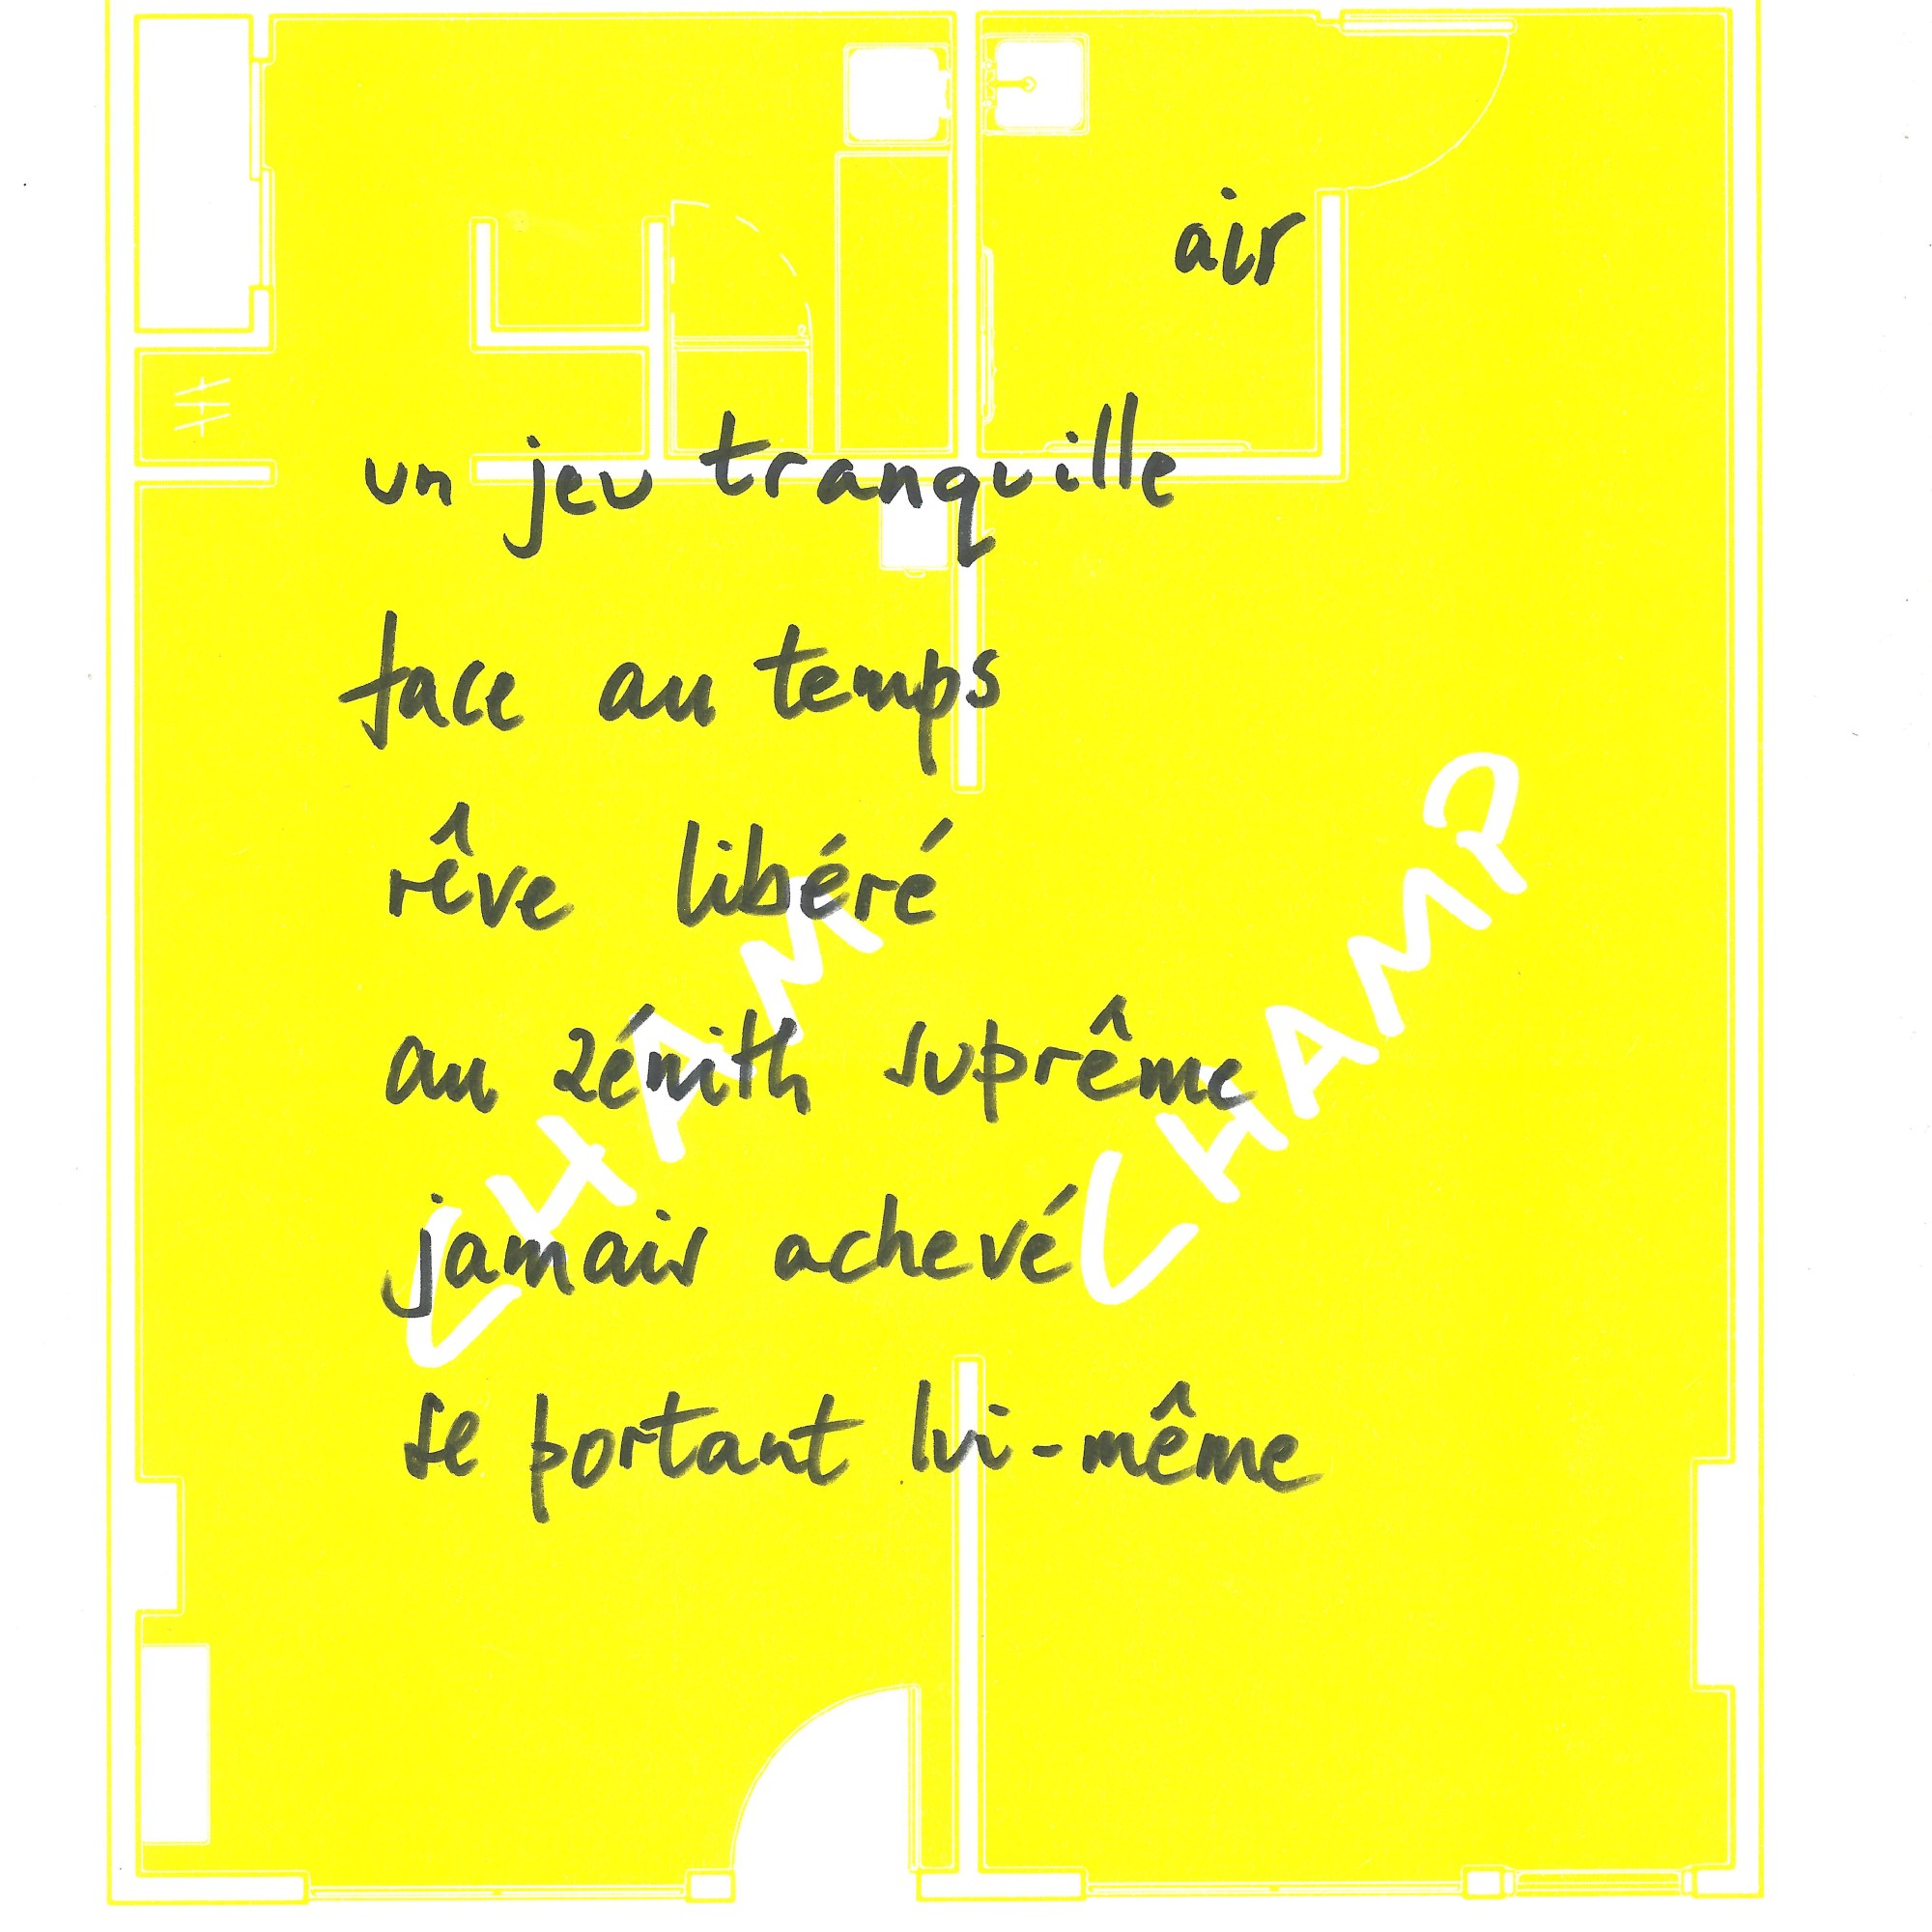 air
un jeu tranquille
face au temps
rêve libéré
au zénith suprême
jamais achevé
se portant lui-même
CHAMP
CHAMP